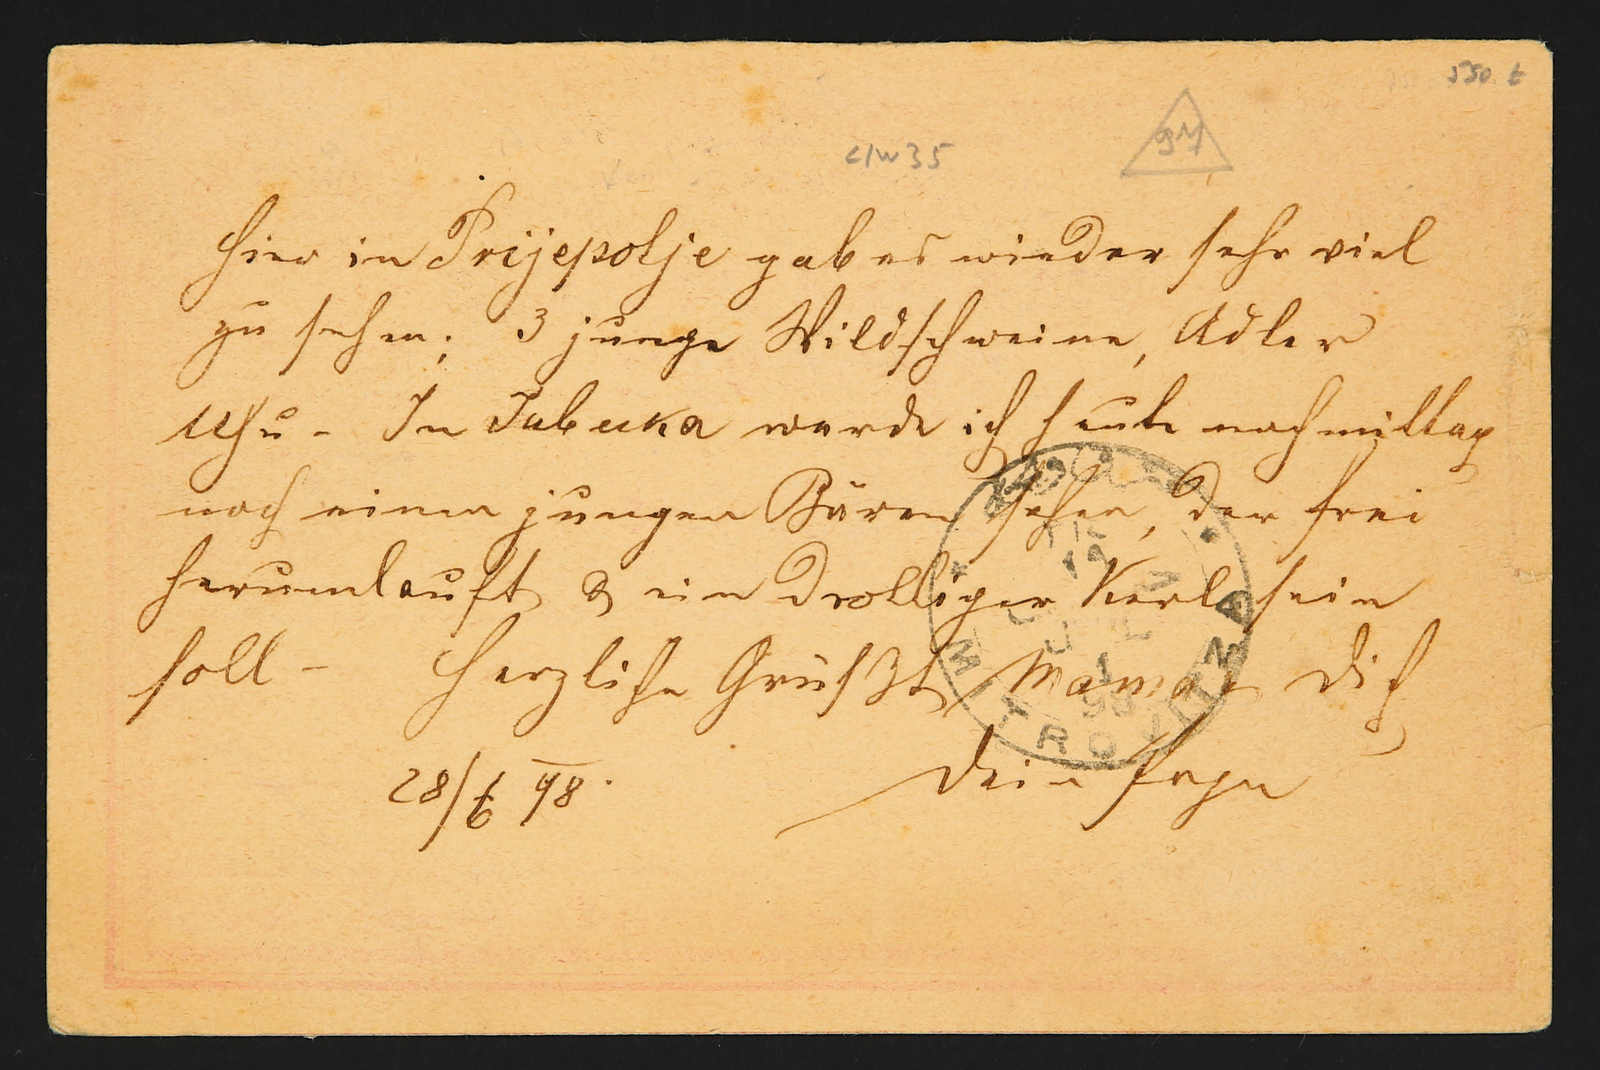 550 t
c/w 35
94
Hier in Prijepolje gab es wieder sehr viel
zu sehen; 3 junge Wildschweine, Adler
Uhu - In Jabuka werde ich heute nachmittag
noch einen jungen Bären sehen, der frei
herumlauft & ein drolliger Kerl sein
soll - Herzliche Grüßt, Mama, Dich
28/6 98. Dein
MITROVITZA